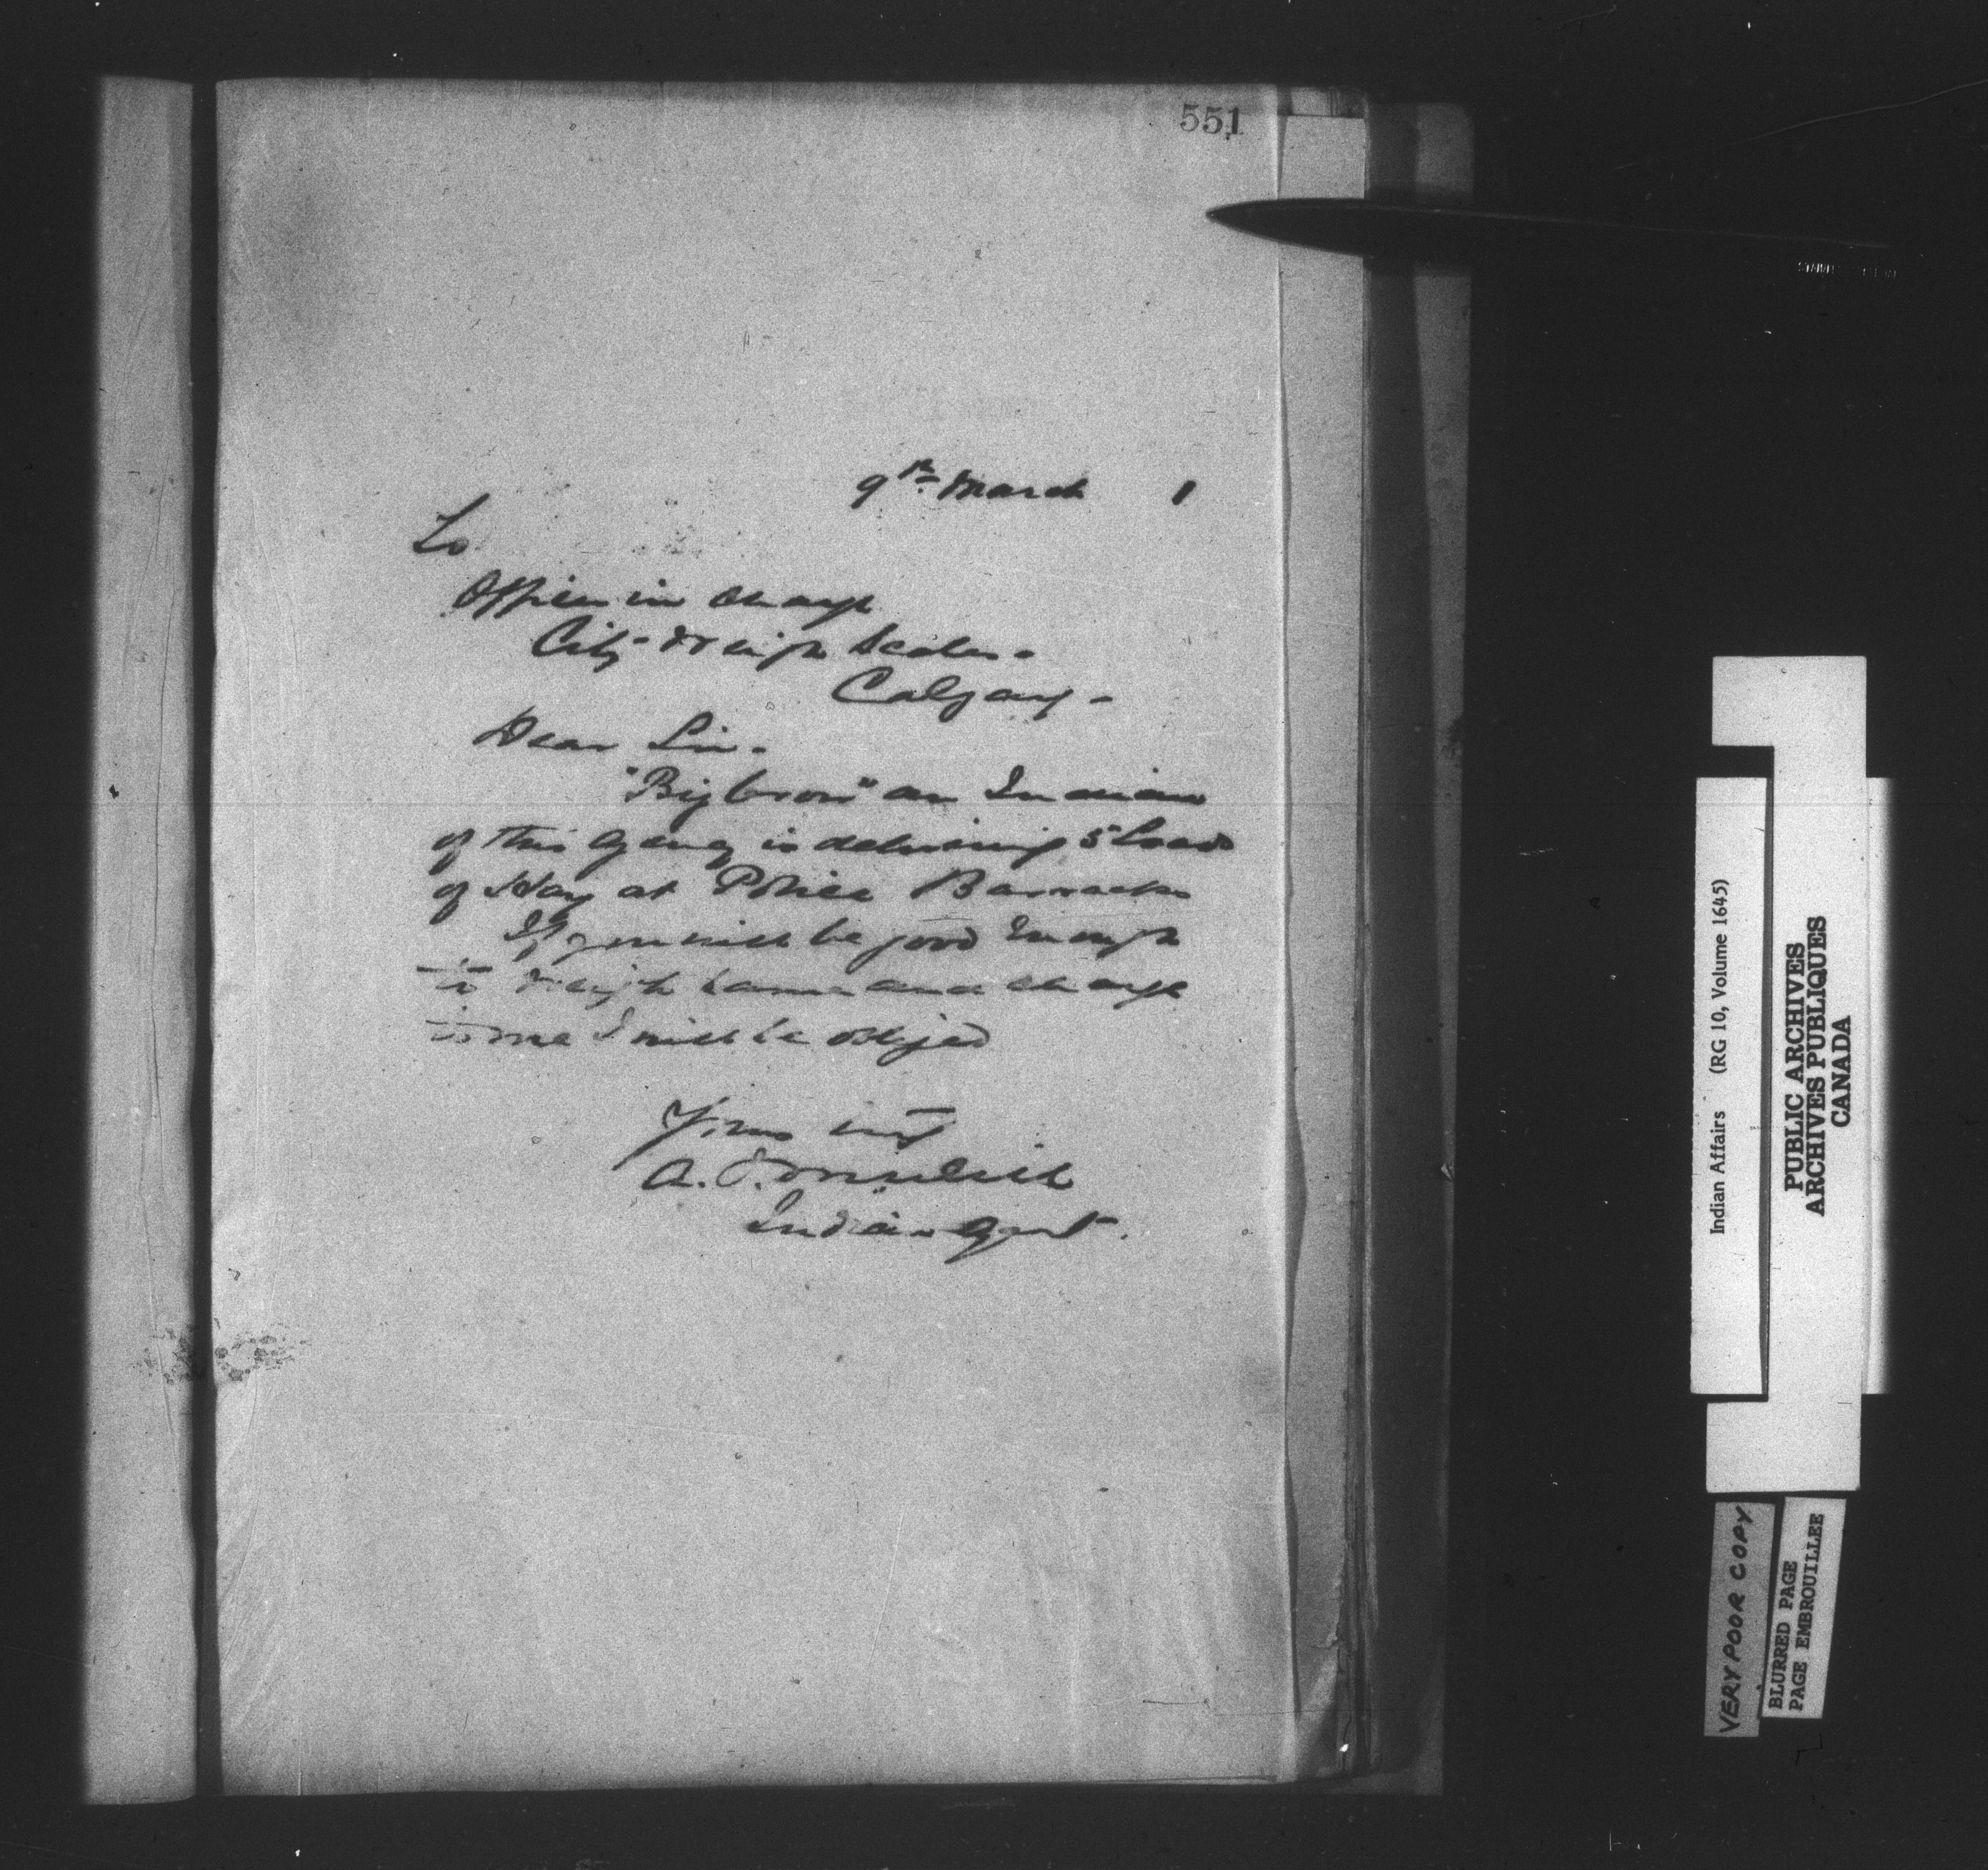 551
9th March 1
To
Officer in charge
City Weigh Scales -
Calgary -
Dear Sir -
"Big Crow" an Indian
of this Agency is delivering 5 Loads
of Hay at Police Barracks
If you will be good Enough
to Weigh same and charge
to me I will be obliged
Yours
A.
Indian Agent.
Indian Affairs (RG 10, Volume 1645)
PUBLIC ARCHIVES
ARCHIVES PUBLIQUES
CANADA
VERY POOR COPY
BLURRED PAGE
PAGE EMBROUILLEE